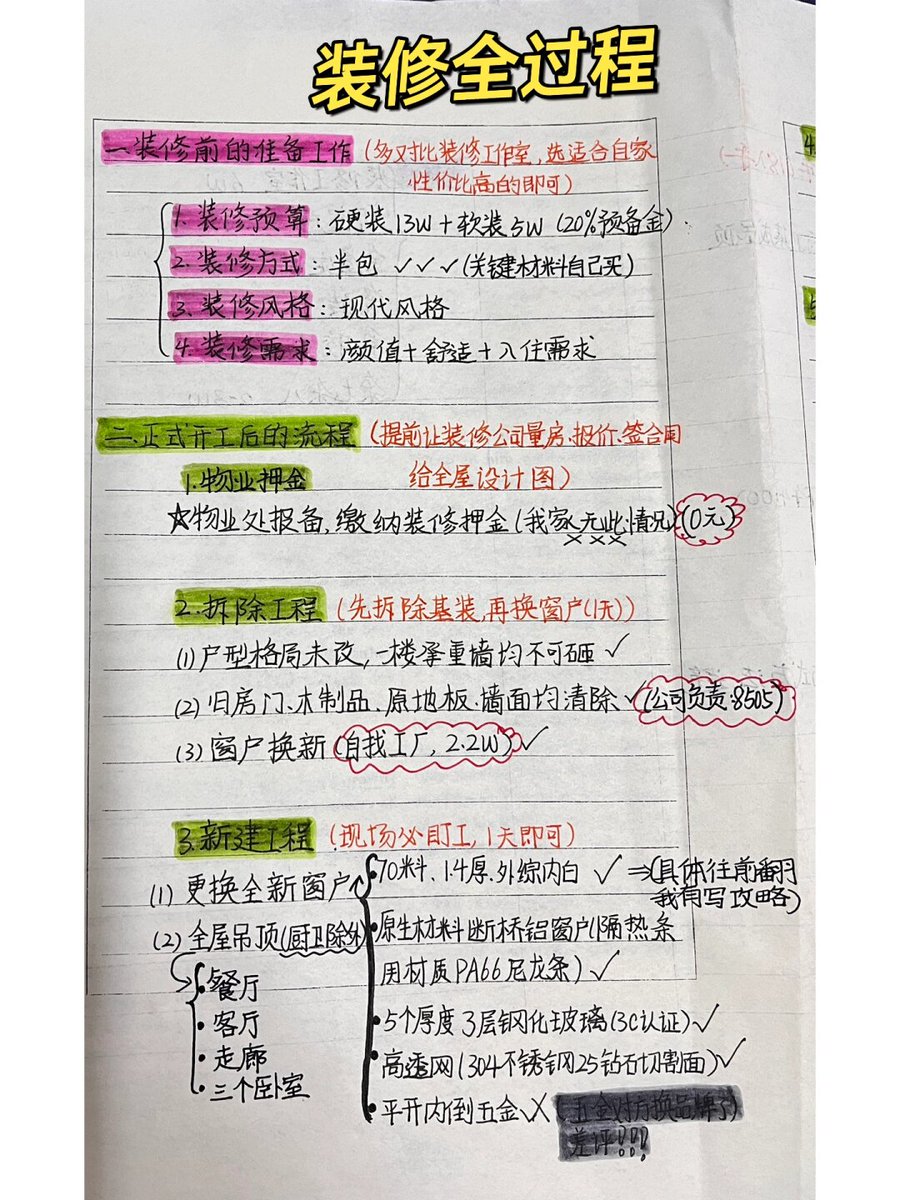 装修全过程
一.装修前的准备工作(多对比装修工作室,选适合自家
性价比高的即可)
1.装修预算:硬装13W+软装5W(20%预备金)
2.装修方式:半包 ✓✓✓(关键材料自己买)
3.装修风格:现代风格
4.装修需求:颜值+舒适+入住需求
二.正式开工后的流程(提前让装修公司量房.报价.签合用
给全屋设计图)
1.物业押金
☆物业处报备,缴纳装修押金(我家无此情况)(0元)
×××
2.拆除工程(先拆除基装,再换窗户(1天))
(1)户型格局未改,一楼承重墙均不可砸✓
(2)旧房门.木制品.原地板.墙面均清除✓(公司负责:8505)
(3)窗户换新(自找工厂,2.2W)✓
3.新建工程(现场必盯工,1天即可)
(1)更换全新窗户
•70料、1.4厚.外综内白 ✓ ⇒(具体往前翻
我有写攻略)
•原生材料断桥铝窗户(隔热条
用材质PA66尼龙条)✓
•5个厚度3层钢化玻璃(3C认证)✓
•高透网(304不锈钢网25钻石切割面)✓
•平开内倒五金✓×(五金对方换品牌了)
差评!!!
(2)全屋吊顶(厨卫除外)
•餐厅
•客厅
•走廊
•三个卧室